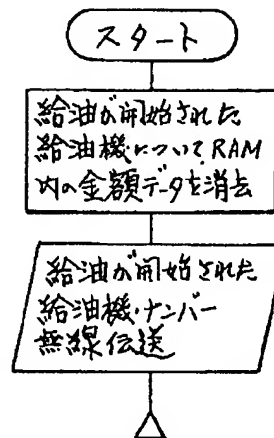 スタート
給油が開始された
給油機について、RAM
内の金額データを消去
給油が開始された
給油機・ナンバー
無線伝送